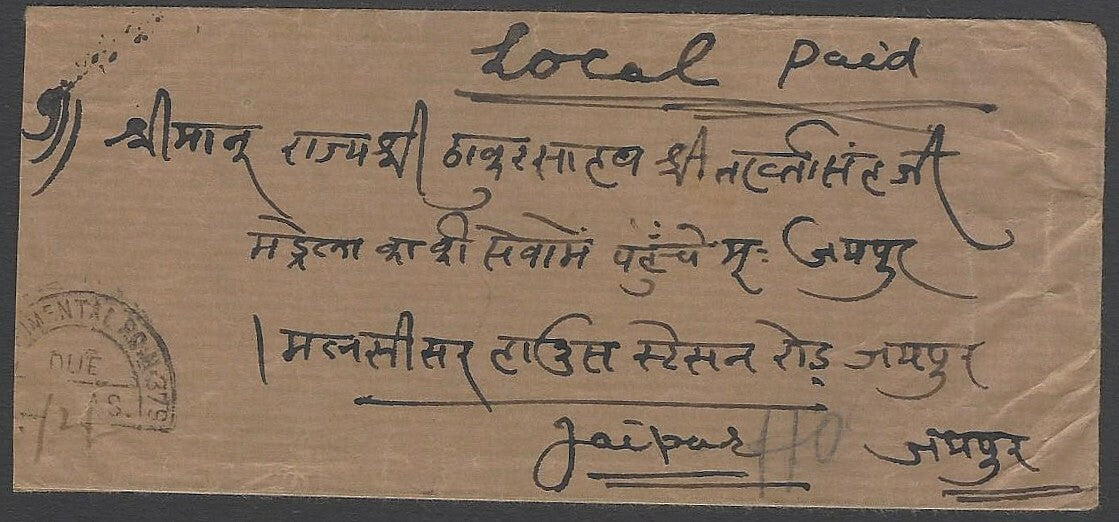 Local Paid
श्रीमान् राज्यश्री ठाकुरसाहब श्री तख्तसिंह जी
की सेवामें पहुँचे मु: जयपुर
। मलसीसर हाउस स्टेसन रोड़ जयपुर
Jaipur 110 जयपुर
MENTAL P.O. No. 379
DUE